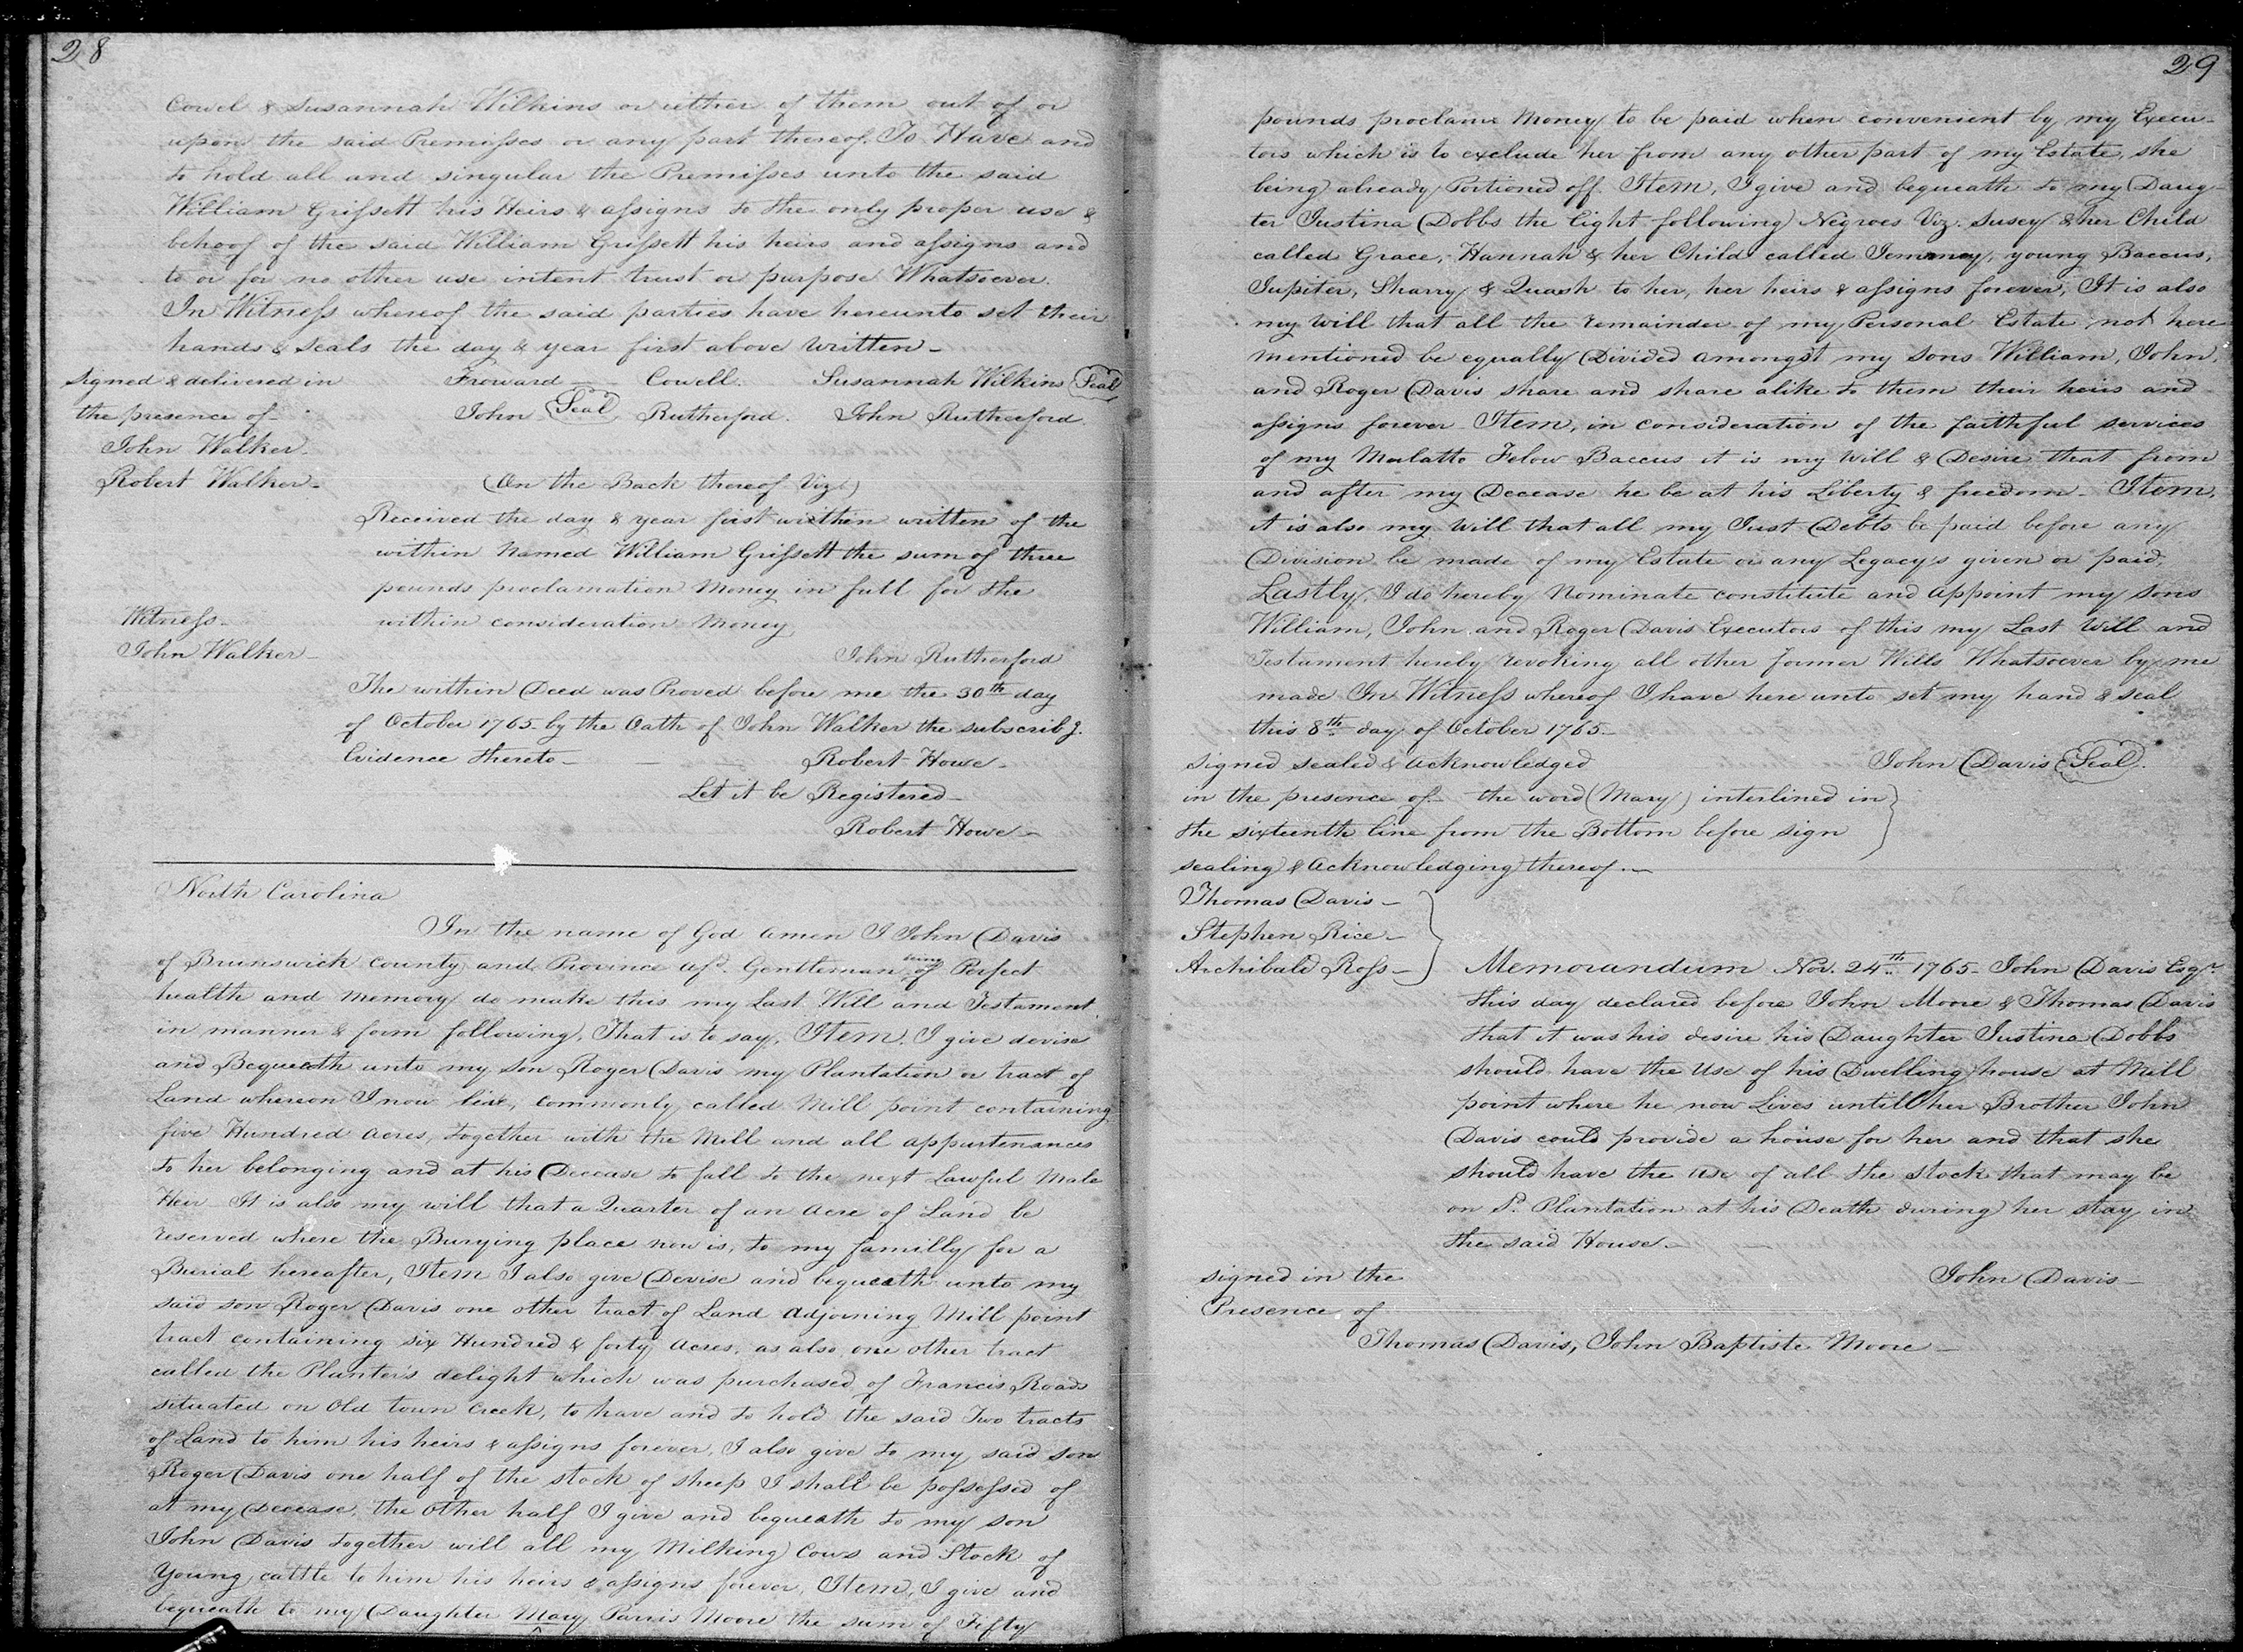 28
Cowel & Susannah Wilkins or either of them out of or
upon the said Premisses or any part thereof. To Have and
to hold all and singular the Premisses unto the said
William Grissett his Heirs & assigns to the only proper use &
behoof of the said William Grissett his heirs and assigns and
to or for no other use intent trust or purpose Whatsoever.
In Witness whereof the said parties have hereunto set their
hands & Seals the day & year first above written -
Signed & delivered in Froward Cowell. Susannah Wilkins Seal
the presence of John Seal Rutherford. John Rutherford
John Walker.
Robert Walker - (On the Back thereof Viz.)
Received the day & year first writhin written of the
within Named William Grissett the sum of three
pounds proclamation Money in full for the
Witness - within consideration Money
John Walker - John Rutherford
The within Deed was Proved before me the 30th day
of October 1765 - by the Oath of John Walker the subscribg.
Evidence thereto - Robert Howe -
Let it be Registered -
Robert Howe -
North Carolina
In the name of God Amen I John Davis
of Brunswick County and Province afd. Gentleman being of Perfect
health and Memory do make this my Last Will and Testament
in manner & form following, That is to say, Item, I give devise
and Bequeath unto my son Roger Davis my Plantation or tract of
Land whereon I now live, commonly called Mill point containing
five Hundred acres, together with the Mill and all appurtenances
to her belonging and at his Decease to fall to the next Lawful Male
Heir - It is also my will that a Quarter of an acre of Land be
reserved where the Burying place now is, to my familly for a
Burial hereafter, Item I also give Devise and bequeath unto my
said son Roger Davis one other tract of Land Adjoining Mill point
tract containing six Hundred & forty acres, as also one other tract
called the Planter's delight which was purchased of Francis Roads
situated on Old town Creek, to have and to hold the said Two tracts
of Land to him his heirs & assigns forever, I also give to my said son
Roger Davis one half of the stock of sheep I shall be possessed of
at my Decease, the other half I give and bequeath to my son
John Davis together will all my Milking Cows and Stock of
Young cattle to him his heirs & assigns forever, Item, I give and
bequeath to my Daughter Mary Parris Moore the sum of Fifty
29
pounds proclam Money to be paid when convenient by my Execu-
tors which is to exclude her from any other part of my Estate, she
being already Portioned off. Item, I give and bequeath to my Daug-
ter Justina Dobbs the Eight following Negroes Viz. Susey & her Child
called Grace, Hannah & her Child called Jemmey, young Baccus,
Jupiter, Sharry & Quash to her, her heirs & assigns forever, It is also
my Will that all the remainder of my Personal Estate not here
mentioned be equally Divided amongst my sons William, John,
and Roger Davis share and share alike to them their heirs and
assigns forever - Item, in consideration of the faithful services
of my Mulatto Felow Baccus it is my Will & Desire that from
and after my Decease he be at his Liberty & freedom - Item,
it is also my Will that all my Just Debts be paid before any
Division be made of my Estate or any Legacy's given or paid,
Lastly, I do hereby Nominate constitute and appoint my sons
William, John and Roger Davis Executors of this my Last Will and
Testament hereby revoking all other former Wills Whatsoever by me
made In Witness whereof I have here unto set my hand & seal
this 8th day of October 1765 -
Signed sealed & acknowledged John Davis Seal
in the presence of - the word (Mary) interlined in
the sixteenth line from the Bottom before sign
sealing & acknowledging thereof. -
Thomas Davis -
Stephen Rice -
Archibald Ross - Memorandum Nov. 24th 1765 - John Davis Esqr.
this day declared before John Moore & Thomas Davis
that it was his desire his Daughter Justina Dobbs
should have the Use of his Dwelling house at Mill
point where he now Lives untill her Brother John
Davis could provide a house for her and that she
should have the use of all the Stock that may be
on Sd. Plantation at his Death during her stay in
the said House -
Signed in the John Davis -
Presence of
Thomas Davis, John Baptiste Moore -